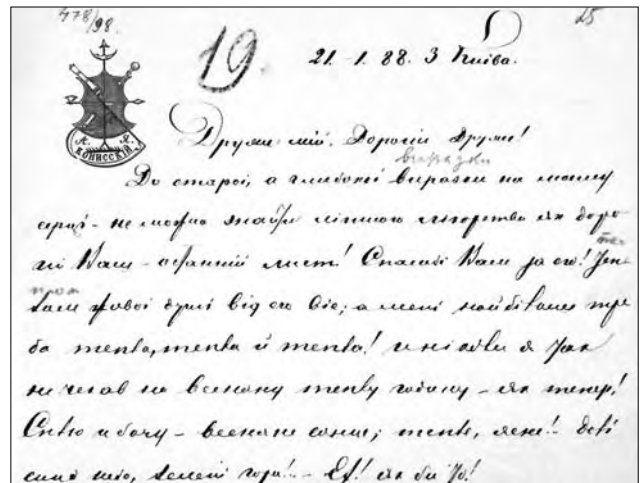 478/98.
25
19.
21. 1. 88. З Киіва.
А. Я.
КОНИССКІЙ
Друже мій. Дорогий Друже!
виразки
До староі, а глибокоі виразки на моему
серці - не можно знайти ліпшого лікарства як доро-
гий Ваш - останній лист! Спасибі Вам за его!
душі від его віе; а мені найбільш тре
ба тепла, тепла й тепла! и ніколи я так
не чекав на весняну теплу годину - як тепер!
Сплю и бачу - весняне сонце; тепле, ясне!
сине небо, зелені гори! - Ех! як би то!